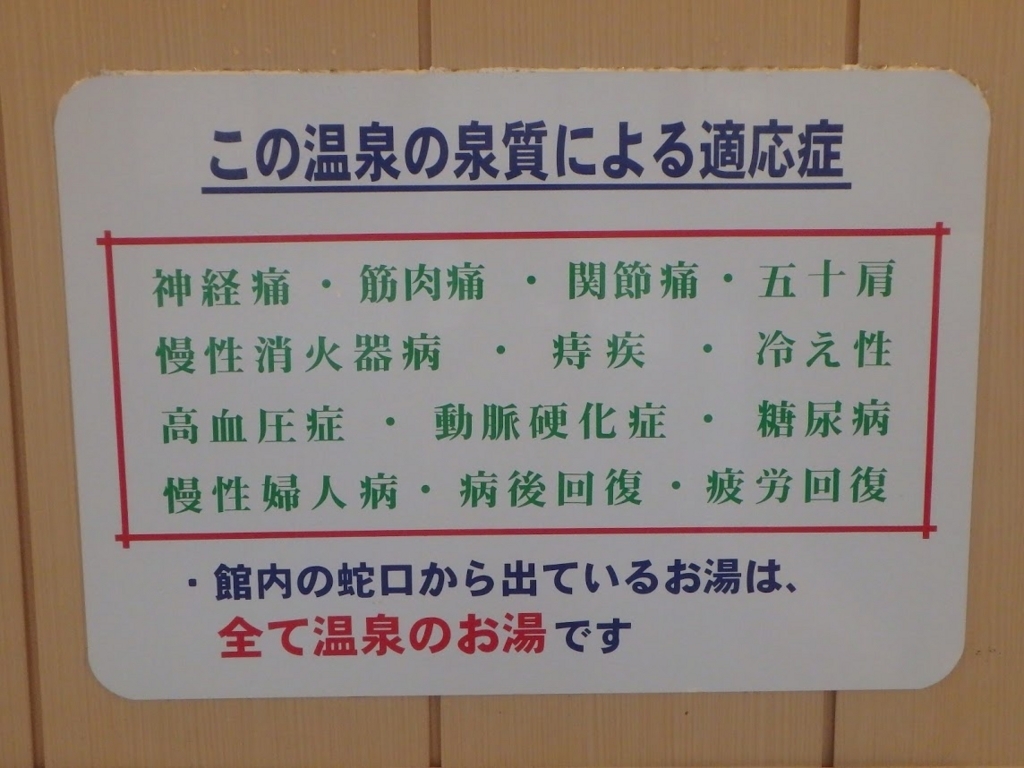 この温泉の泉質による適応症
神経痛・筋肉痛・関節痛・五十肩
慢性消火器病・痔疾・冷え性
高血圧症・動脈硬化症・糖尿病
慢性婦人病・病後回復・疲労回復
・館内の蛇口から出ているお湯は、
全て温泉のお湯です